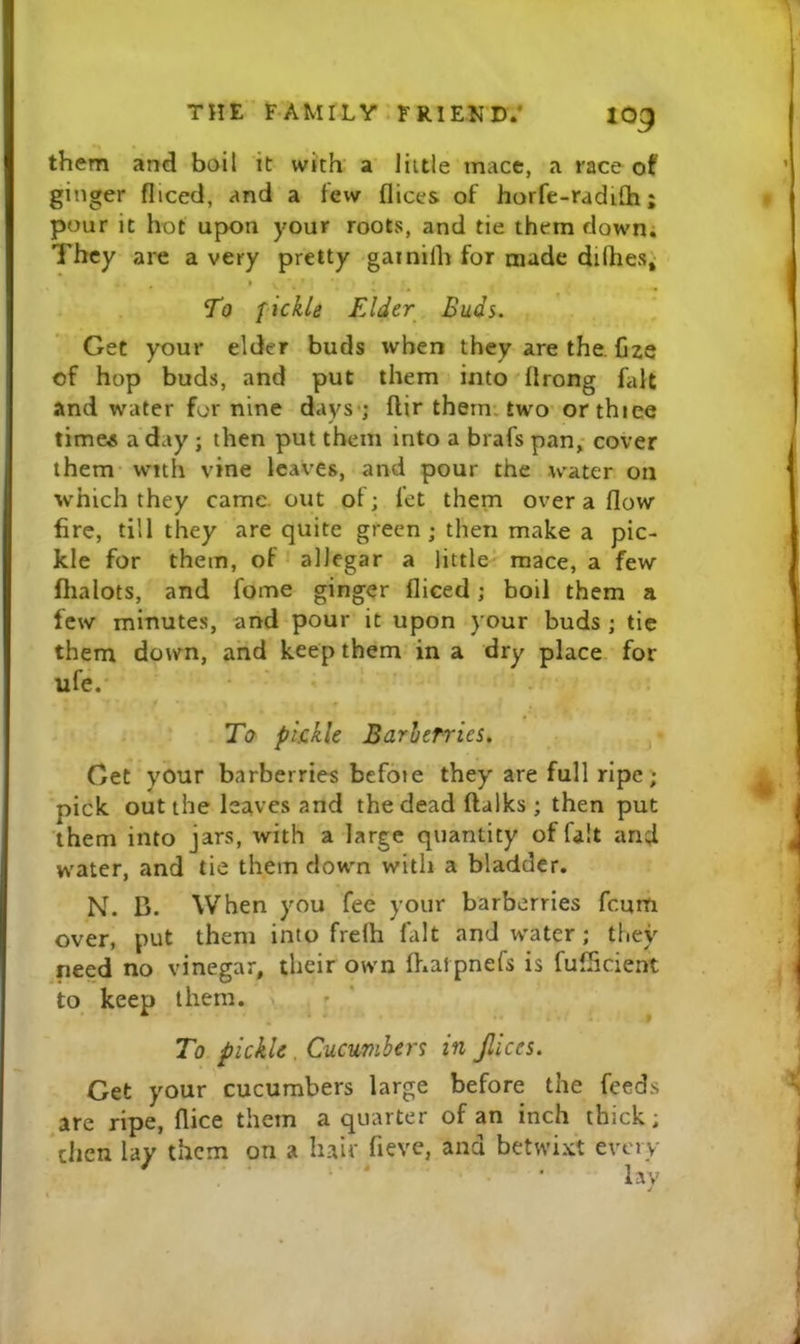 THE FAMILY FRIEND. 109
them and boil it with a little mace, a race of
ginger ſliced, and a few ſlices of horſe-radiſh;
pour it hot upon your roots, and tie them down.
They are a very pretty garniſh for made diſhes.
To pickle Elder Buds.
Get your elder buds when they are the ſize
of hop buds, and put them into ſtrong ſalt
and water for nine days; ſtir them two or three
times a day; then put them into a braſs pan, cover
them with vine leaves, and pour the water on
which they came out of; ſet them over a ſlow
fire, till they are quite green; then make a pic-
kle for them, of allegar a little mace, a few
ſhalots, and ſome ginger ſliced; boil them a
few minutes, and pour it upon your buds; tie
them down, and keep them in a dry place for
uſe.
To pickle Barberries.
Get your barberries before they are full ripe;
pick out the leaves and the dead ſtalks; then put
them into jars, with a large quantity of ſalt and
water, and tie them down with a bladder.
N. B. When you ſee your barberries ſcum
over, put them into freſh ſalt and water; they
need no vinegar, their own ſharpneſs is ſufficient
to keep them.
To pickle Cucumbers in ſlices.
Get your cucumbers large before the ſeeds
are ripe, ſlice them a quarter of an inch thick;
then lay them on a hair ſieve, and betwixt every
lay